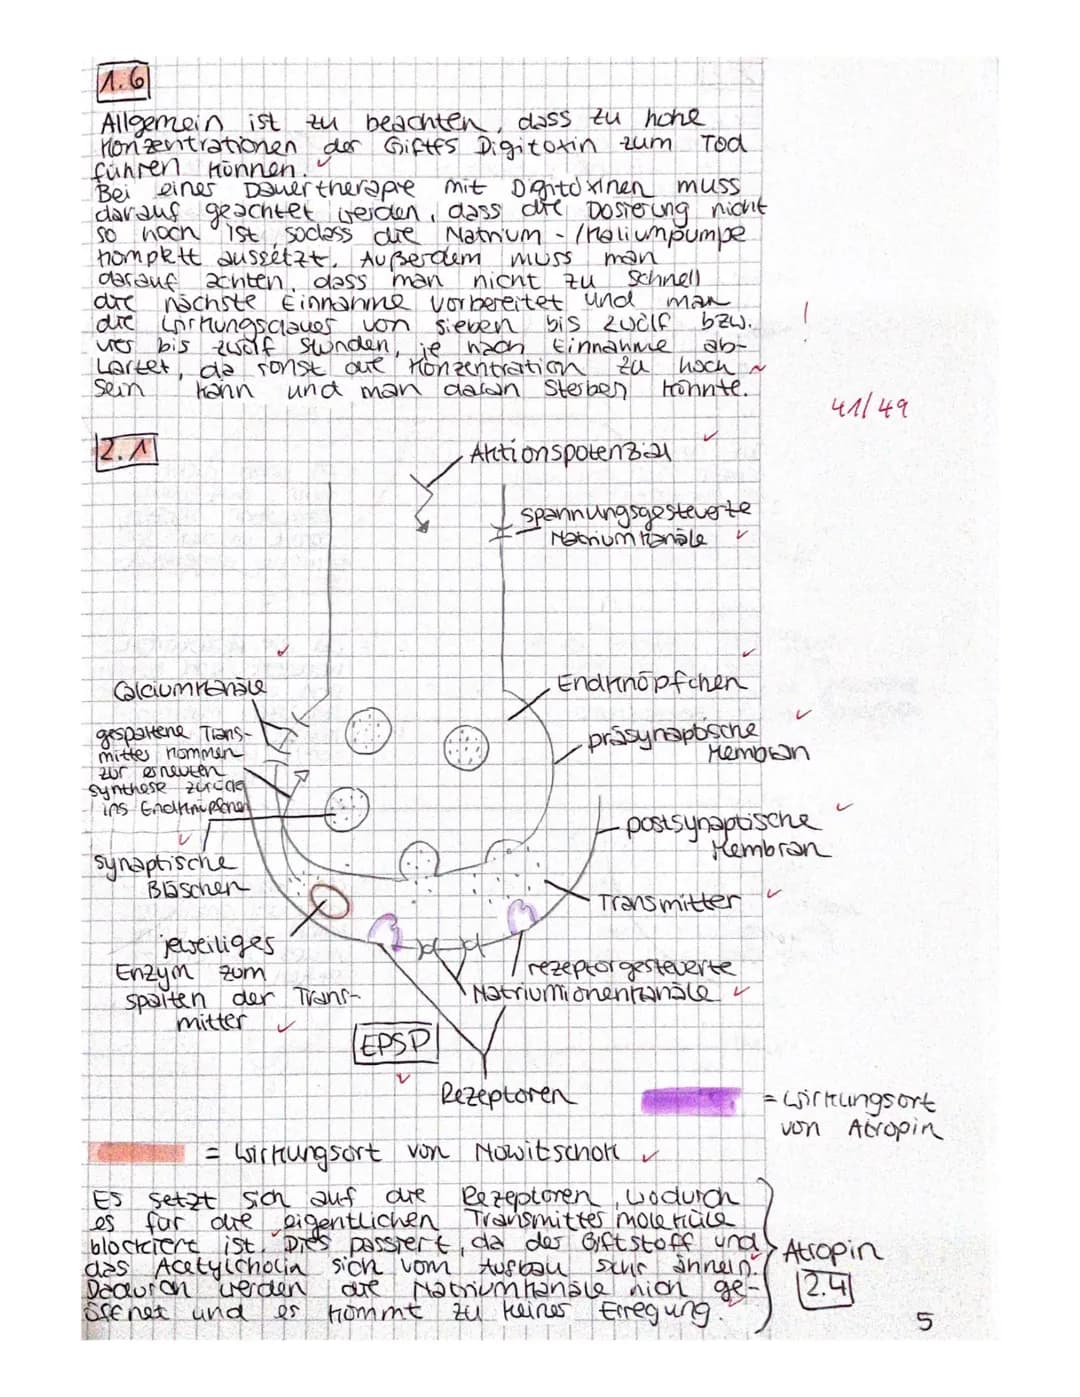 1.6
Allgemein ist zu beachten, dass zu hohe
Konzentrationen der Giftes Digitoxin zum Tod
führen können.
Bei einer Dauertherapie mit Digitoxinen muss
darauf geachtet werden, dass die Dosierung nicht
so hoch ist, sodass die Natrium-/Kaliumpumpe
komplett aussetzt. Außerdem muss man
darauf achten, dass man nicht zu schnell
die nächste Einnahme vorbereitet und man
die Wirkungsdauer von sieben bis zwölf bzw.
vier bis zwölf Stunden, je nach Einnahme ab-
wartet, da sonst die Konzentration zu hoch
sein kann und man daran sterben könnte.
!
~
41/49
2.1
Aktionspotenzial
spannungsgesteuerte
Natriumkanäle
Calciumkanäle
Endknöpfchen
gespaltene Trans-
mitter kommen
zur erneuten
Synthese zurück
ins Endknöpfchen
präsynaptische
Membran
postsynaptische
Membran
synaptische
Bläschen
Transmitter
jeweiliges
Enzym zum
spalten der Trans-
mitter
rezeptorgesteuerte
Natriumionenkanäle
EPSP
Rezeptoren
= Wirkungsort
von Atropin
= Wirkungsort von Nowitschok
Es setzt sich auf die Rezeptoren, wodurch
es für die eigentlichen Transmittermoleküle
blockiert ist. Dies passiert, da der Giftstoff und
das Acetylcholin sich vom Aufbau sehr ähneln.
Dadurch werden die Natriumkanäle nich ge-
öffnet und es kommt zu keiner Erregung.
Atropin
2.4
5